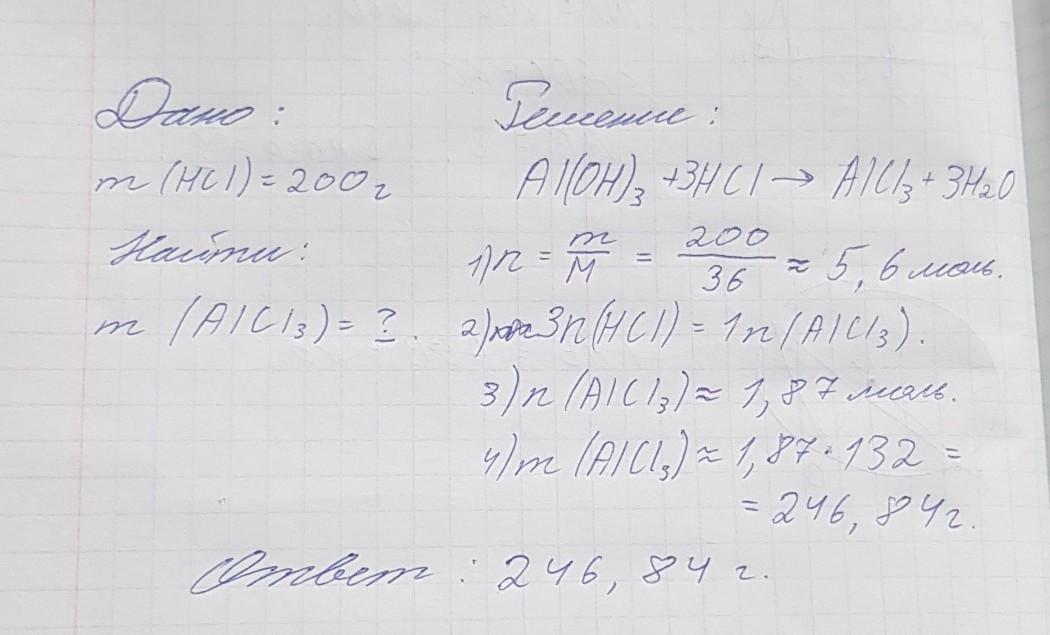 Дано:
m (HCl) = 200 г
Найти:
m (AlCl₃) = ?.
Решение:
Al(OH)₃ + 3HCl → AlCl₃ + 3H₂O
1) n = m/M = 200/36 ≈ 5,6 моль.
2) 3n(HCl) = 1n(AlCl₃).
3) n (AlCl₃) ≈ 1,87 моль.
4) m (AlCl₃) ≈ 1,87 · 132 =
= 246,84 г.
Ответ : 246,84 г.